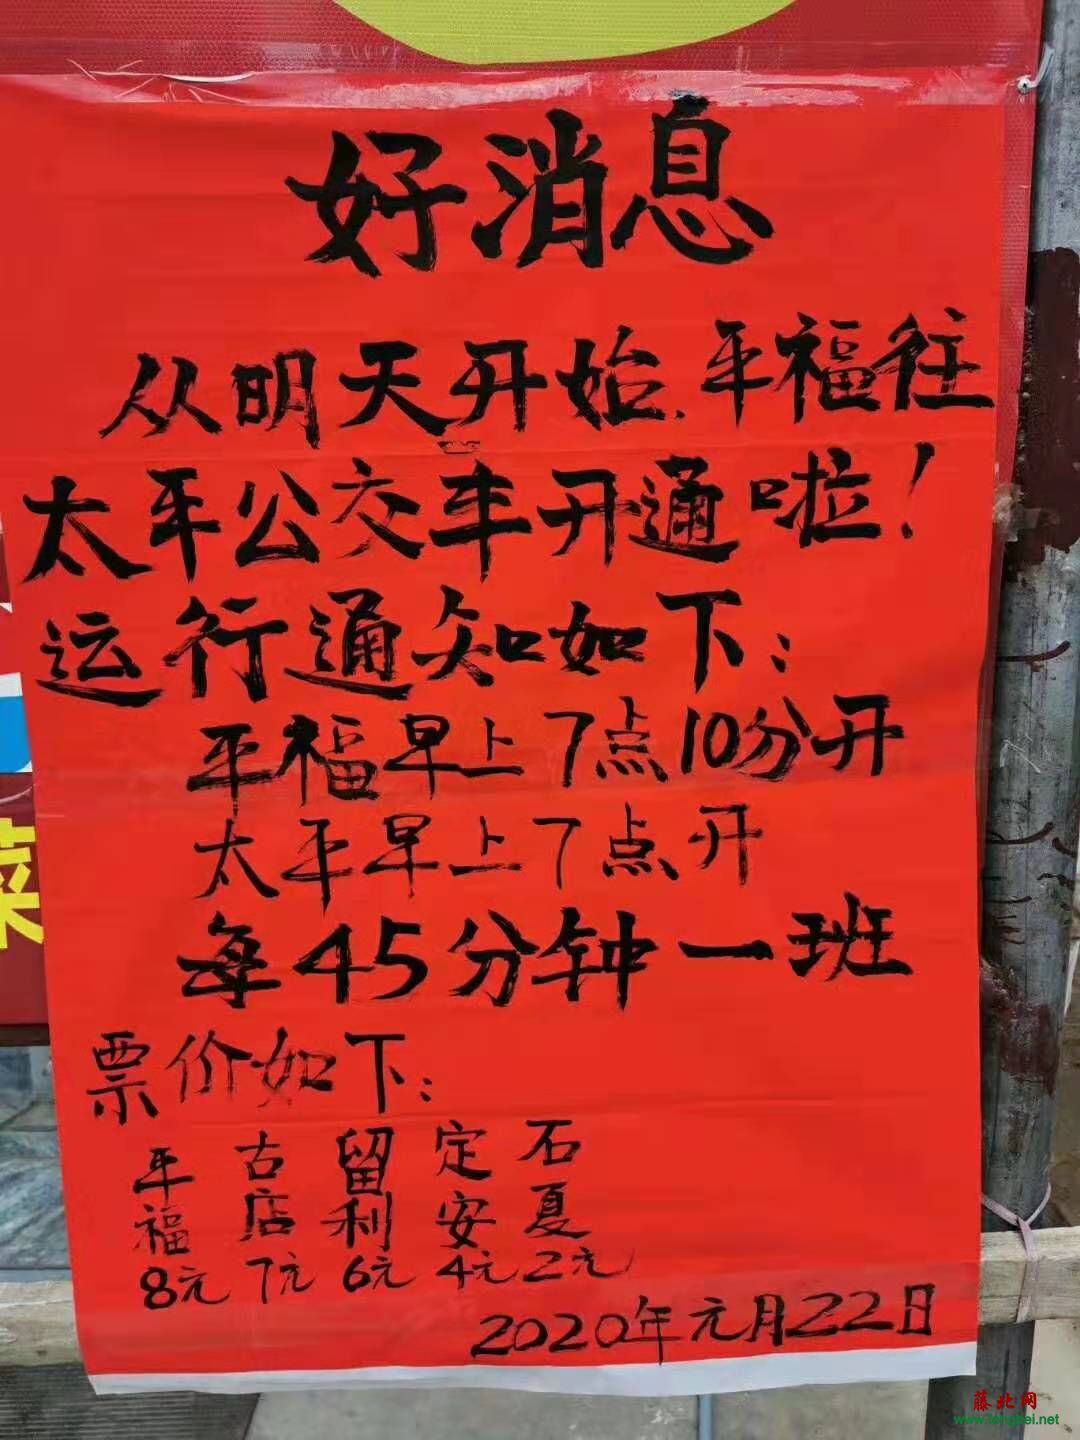 好消息
从明天开始.平福往
太平公交车开通啦！
运行通知如下：
平福早上7点10分开
太平早上7点开
每45分钟一班
票价如下：
平福 古店 留利 定安 石夏
8元 7元 6元 4元 2元
2020年元月22日
菜
藤北网
www.tengbei.net